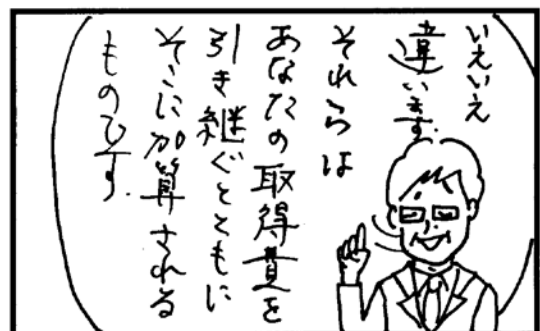 いえいえ
違います.
それらは
あなたの取得費を
引き継ぐとともに
そこに加算される
ものです.